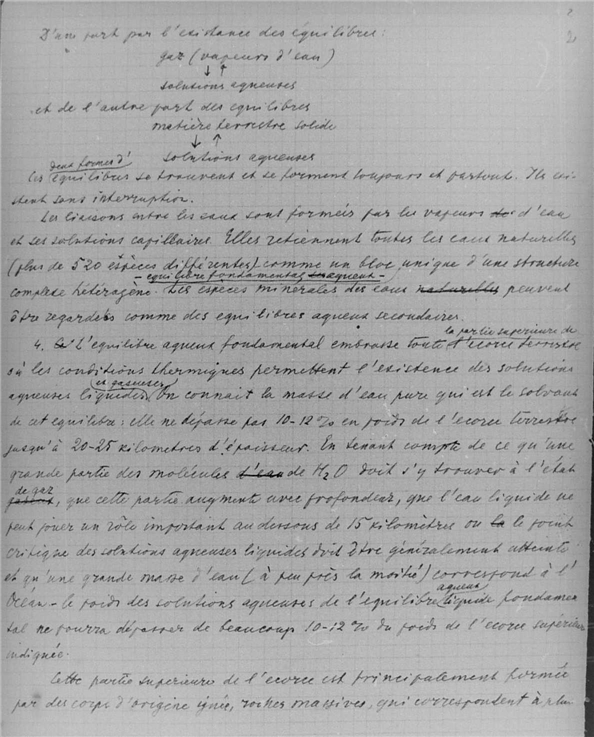 2
D'une part par l'existance des équilibres:
gaz (vapeurs d'eau)
↓ ↑
solutions aqueuses
et de l'autre part des equilibres
matière terrestre solide
↓ ↑
solutions aqueuses
deux formes d'
Ces équilibres se trouvent et se forment toujours et partout. Ils exi-
stent sans interruption.
Les liaisons entre les eaux sont formées par les vapeurs d'eau
et ses solutions capillaires. Elles retiennent toutes les eaux naturelles
(plus de 520 espèces différentes) comme un bloc unique d'une structure
- equilibre fondamental aqueux -
complexe hétérogène. Les espèces minerales des eaux naturelles peuvent
être regardés comme des equilibres aqueux secondaires.
la partie superieure de
4. L'equilibre aqueux fondamental embrasse toute l'ecorce terrestre
où les conditions thermiques permettent l'existence des solutions
et gaseuses
aqueuses liquides. On connait la masse d'eau pure qui est le solvant
de cet equilibre: elle ne dépasse pas 10-12% en poids de l'ecorce terrestre
jusqu'à 20-25 kilometres d'épaisseur. En tenant compte de ce qu'une
grande partie des molécules d'eau de H2O doit s'y trouver à l'état
de gaz
, que cette partie augmente avec profondeur, que l'eau liquide ne
peut jouer un rôle important au dessous de 15 kilomètres ou le point
critique des solutions aqueuses liquides doit être généralement atteint
et qu'une grande masse d'eau (à peu près la moitié) correspond à l'
aqueux
Océan - le poids des solutions aqueuses de l'equilibre liquide fondamen-
tal ne pourra dépasser de beaucoup 10-12% du poids de l'ecorce supérieure
indiquée.
Cette partie superieure de l'ecorce est principalement formée
par des corps d'origine ignée, roches massives, qui correspondent à plus